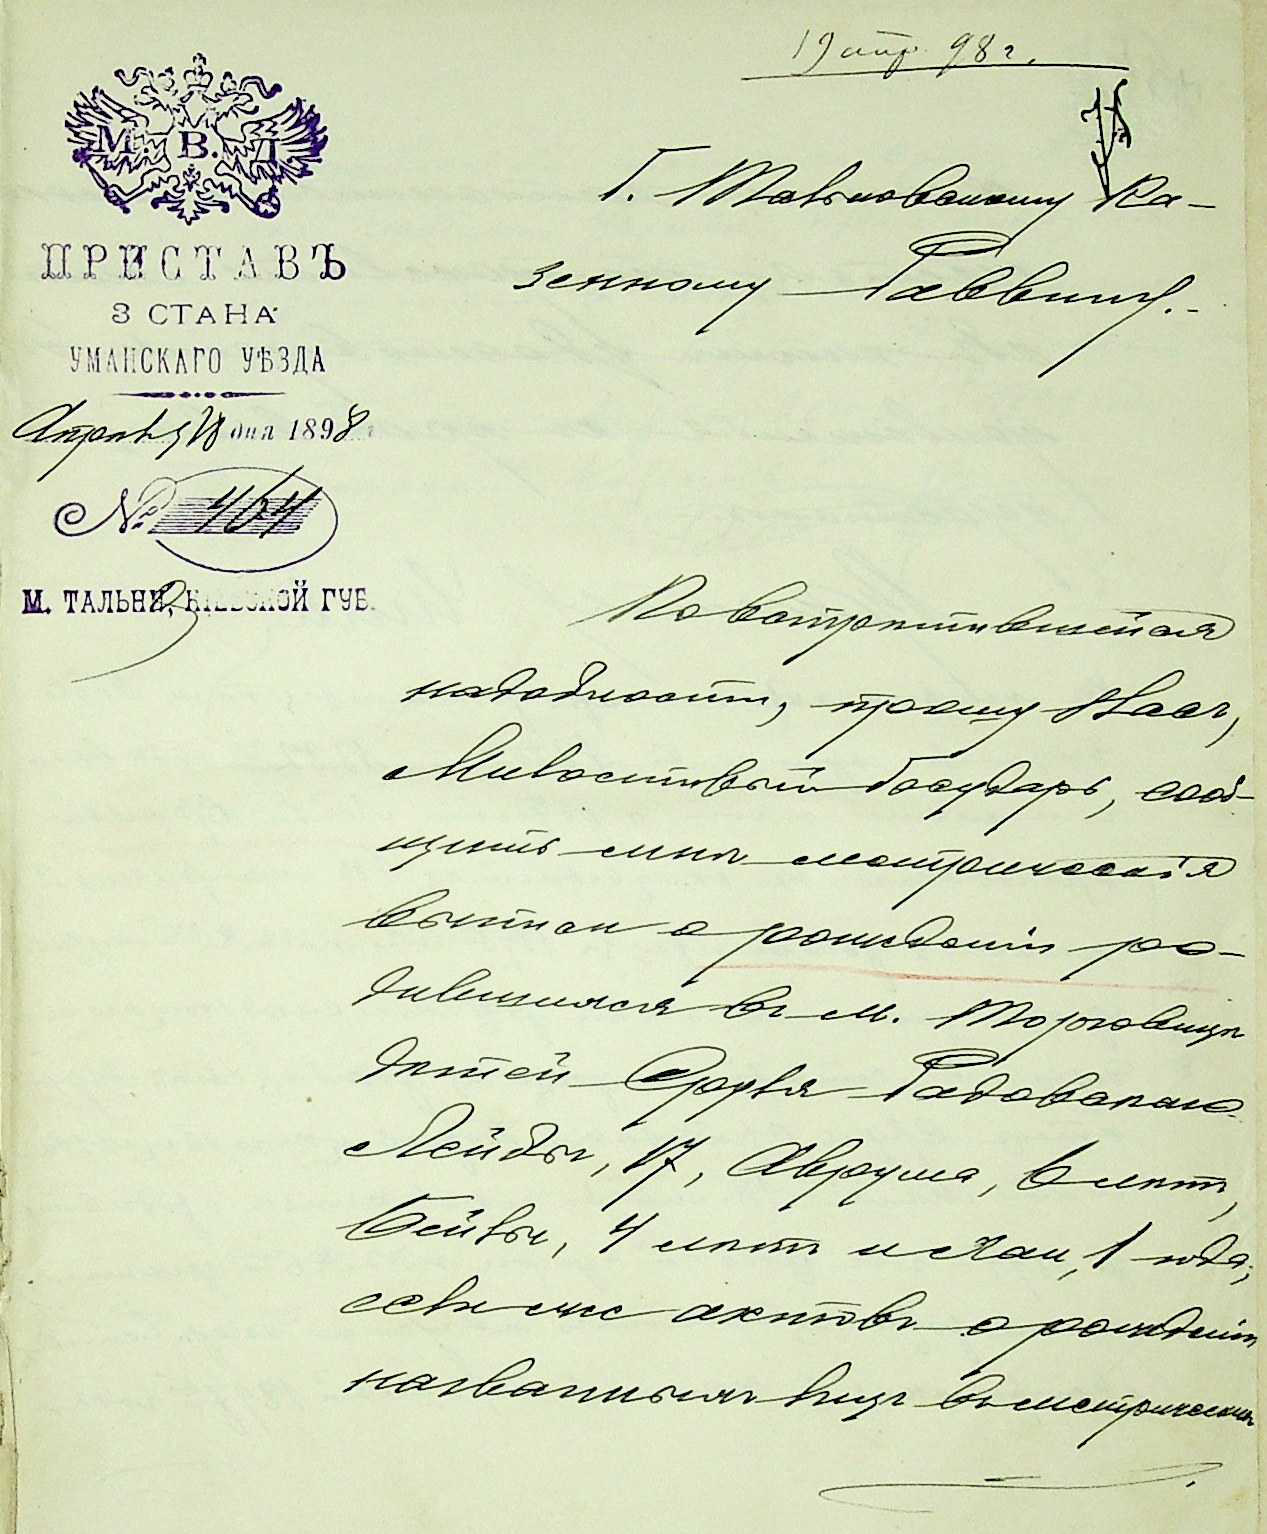 19 апр. 98 г.
М. В. Д.
ПРИСТАВЪ
3 СТАНА
УМАНСКАГО УѢЗДА
Апрѣля 18 дня 1898 г.
№ 464
М. ТАЛЬНИ, КІЕВСКОЙ ГУБ.
Г. Тальновскому Ка-
зенному Раввину.
По встрѣтившейся
надобности, прошу Васъ,
Милостивый Государь, сооб-
щить мнѣ метрическія
выписи о рожденіи ро-
дившихся въ м. Торговицѣ
дѣтей Сруля
Лейбы, 17, Аврума, 6 лѣтъ,
Бейлы, 4 лѣтъ и Хаи, 1 года;
если же актовъ о рожденіи
названныхъ лицъ въ метрическихъ